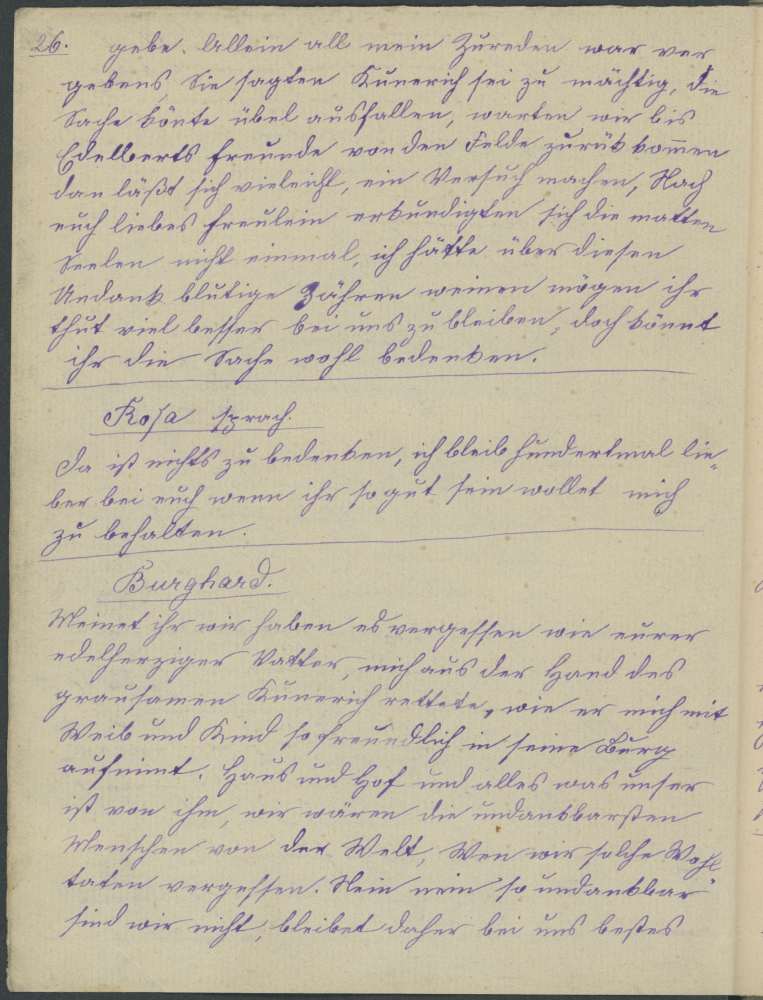 26. gebe. Allein all mein Zureden war ver
gebens, Sie sagten Kunerich sei zu mächtig, die
Sache könte übel ausfallen, warten wir bis
Edelberts freunde von den Felde zurük kom̅en
dan läßt sich vieleicht, ein Versuch machen, Nach
euch liebes freulein erkundigten sich die matten
Seelen nicht einmal, ich hätte über diesen
Undank blutige Zähren weinen mögen ihr
thut viel besser bei uns zu bleiben, doch könnt
ihr die Sache wohl bedenken.
Rosa sprach.
Da ist nichts zu bedenken, ich bleib hundertmal lie„
ber bei euch wenn ihr so gut sein wollet mich
zu behalten.
Burghard.
Meinet ihr wir haben es vergessen wie eurer
edelherziger Vatter, mich aus der Hand des
grausamen Kunerich rettete, wie er mich mit
Weib und Kind so freundlich in seine Burg
aufnimt. Haus und Hof und alles was unser
ist von ihm, wir wären die undankbarsten
Menschen von der Welt, Wen wir solche Wohl
taten vergessen. Nein nein so undankbar
sind wir nicht, bleibet daher bei uns bestes